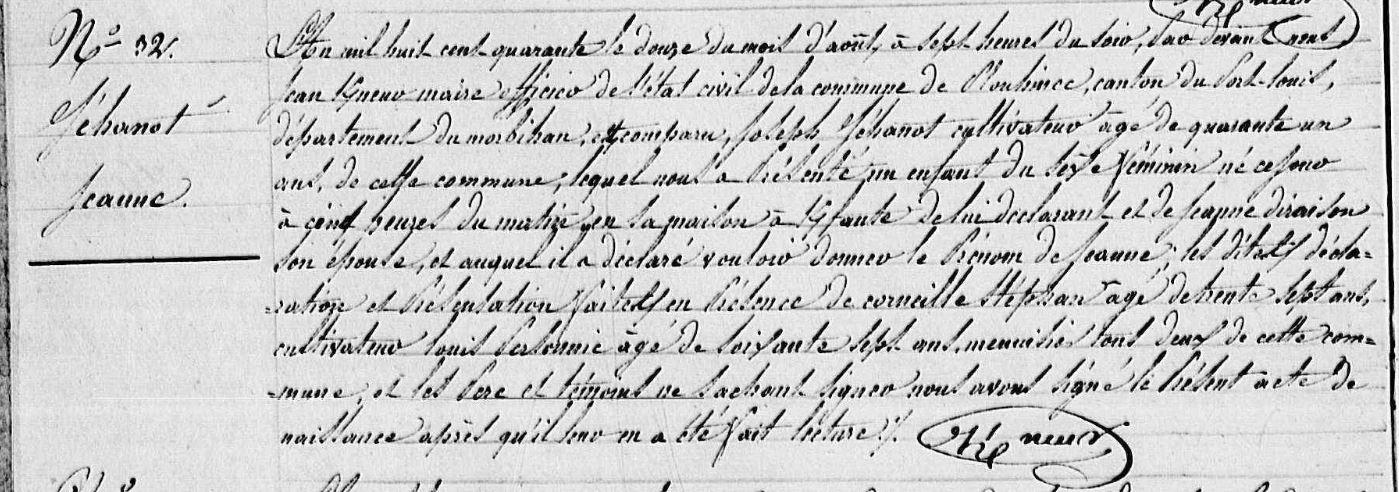 N° 32.
Jéhanot
Jeanne.
L'An mil huit cent quarante le douze du mois d'août, à sept heures du soir, Par devant nous
Jean Kneur maire officier de l'état civil de la commune de Plouhince, canton du Port-Louis,
département du morbihan, est comparu, Joseph Jéhanot cultivateur âgé de quarante un
ans, de cette commune; lequel nous a Présenté un enfant du sexe féminin né ce jour
à cinq heures du matin en sa maison à de lui déclarant et de Jeanne diraison
son épouse, et auquel il a déclaré vouloir donner le Prénom de Jeanne; les dites décla=
=ration et Présentation faites en Présence de corneille Stéphan âgé de trente sept ans,
cultivateur louis âgé de soixante sept ans, menuisier tous deux de cette com=
=mune, et les Pere et témoins ne sachant signer nous avons signé le Présent acte de
naissance après qu'il leur en a été fait lecture ./.
Kneur